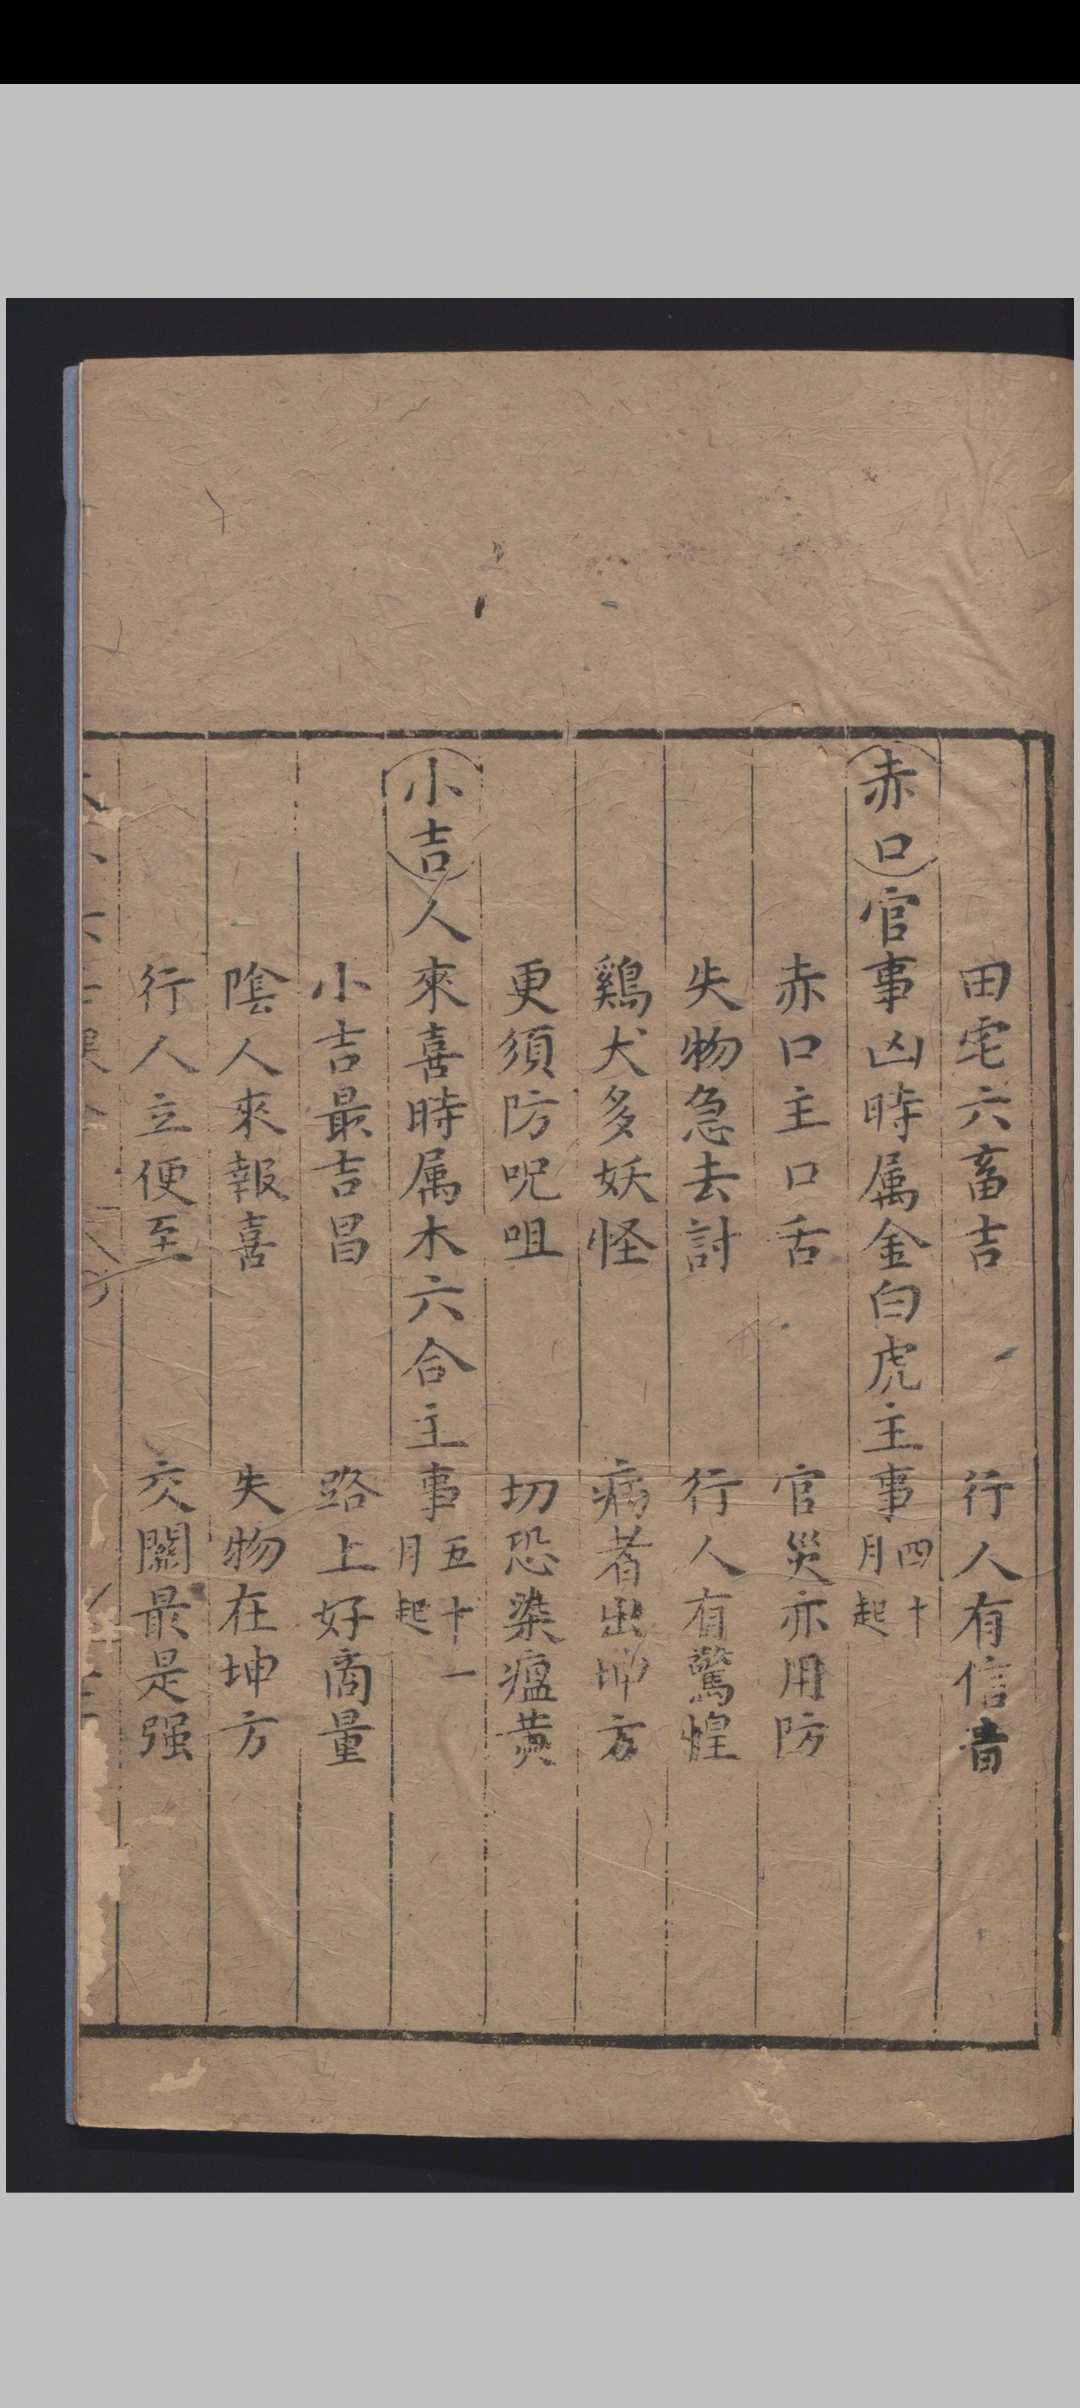 田宅六畜吉　行人有信音
赤口官事凶時属金白虎主事四十月起
赤口主口舌　官災亦用防
失物急去討　行人有驚惶
鷄犬多妖怪　病者出坤方
更須防呪咀　切恐染瘟黄
小吉人來喜時属木六合主事五十一月起
小吉最吉昌　路上好商量
陰人來報喜　失物在坤方
行人立便至　交關最是强